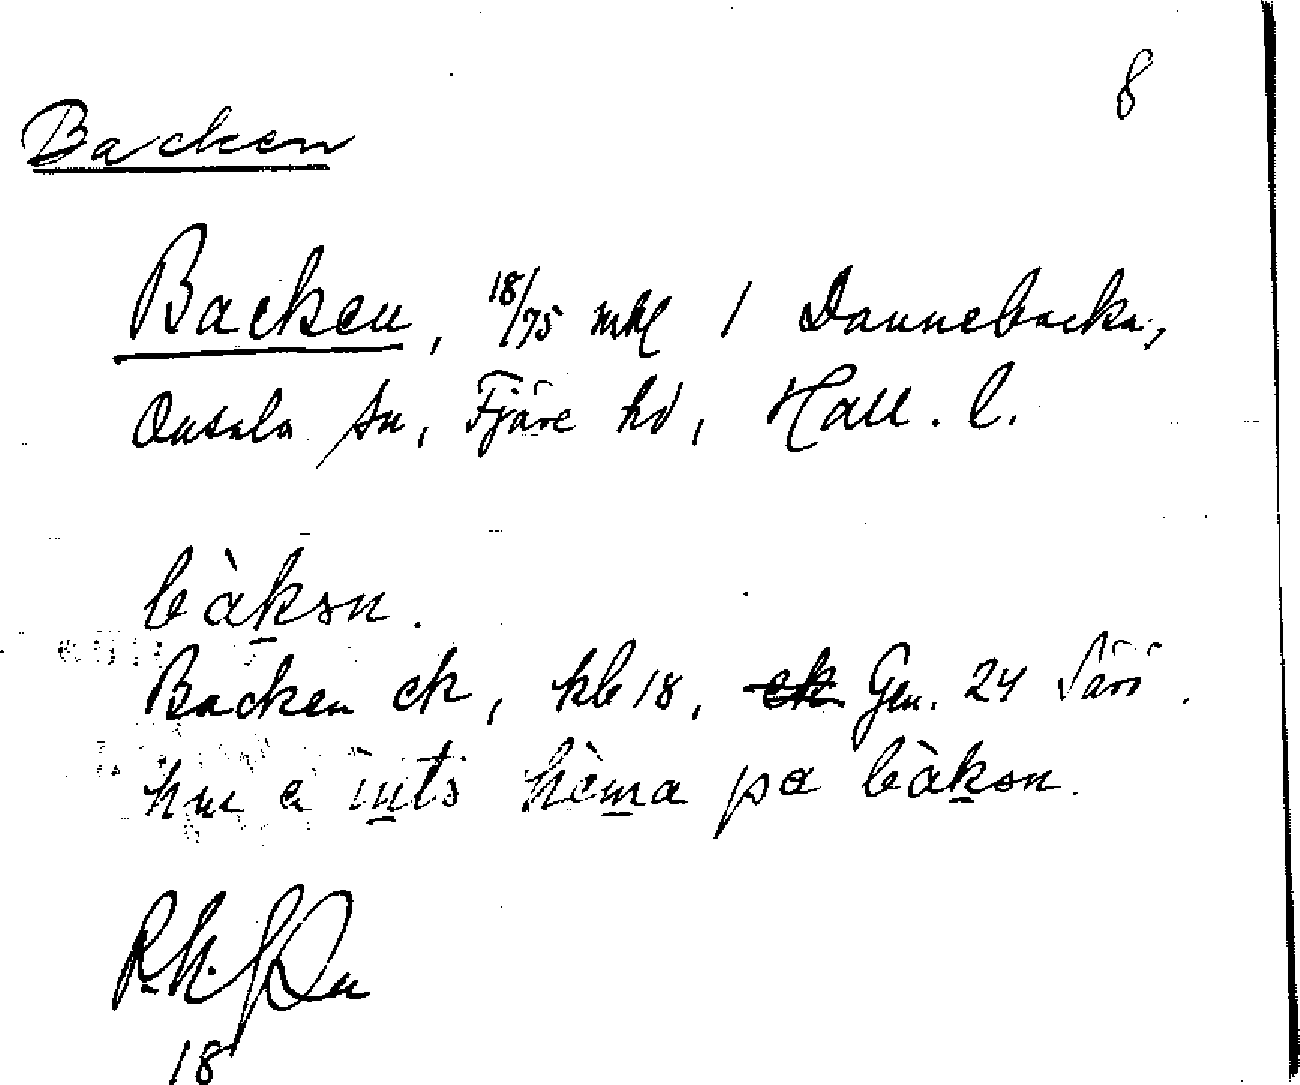 8
Backen
Backen, 18/75 mtl 1 Dannebacka,
Onsala sn, Fjäre hd, Hall. l.
bàkən.
Backen ek, kb 18, Gen. 24 Särö.
hɯ a ìntə hèma pa bàkən.
18